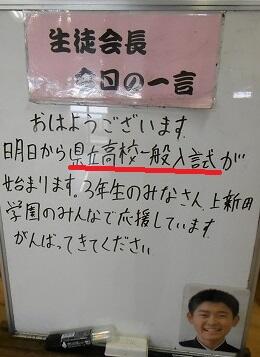 生徒会長
今日の一言
おはようございます
明日から県立高校一般入試が
始まります。3年生のみなさん上新田
学園のみんなで応援しています
がんばってきてください